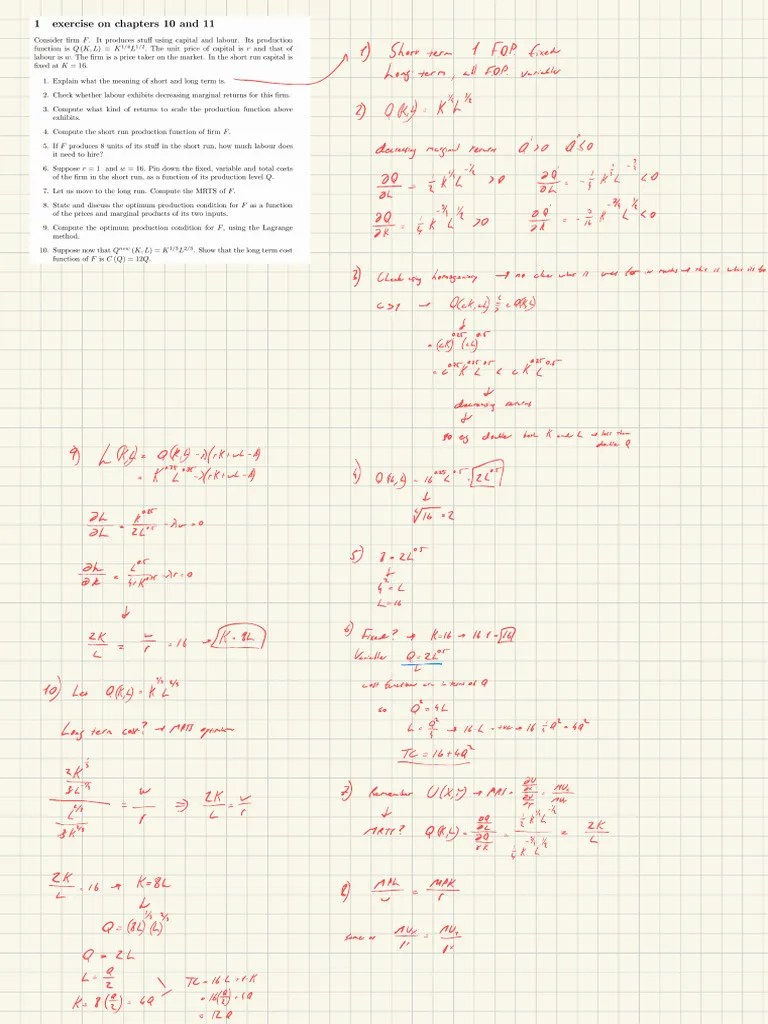 1 exercise on chapters 10 and 11
Consider firm F. It produces stuff using capital and labour. Its production
function is Q (K, L) = K^{1/4}L^{1/2}. The unit price of capital is r and that of
labour is w. The firm is a price taker on the market. In the short run capital is
fixed at K = 16.
1. Explain what the meaning of short and long term is.
2. Check whether labour exhibits decreasing marginal returns for this firm.
3. Compute what kind of returns to scale the production function above
exhibits.
4. Compute the short run production function of firm F.
5. If F produces 8 units of its stuff in the short run, how much labour does
it need to hire?
6. Suppose r = 1 and w = 16. Pin down the fixed, variable and total costs
of the firm in the short run, as a function of its production level Q.
7. Let us move to the long run. Compute the MRTS of F.
8. State and discuss the optimum production condition for F as a function
of the prices and marginal products of its two inputs.
9. Compute the optimum production condition for F, using the Lagrange
method.
10. Suppose now that Q^{new} (K, L) = K^{1/3}L^{2/3}. Show that the long term cost
function of F is C (Q) = 12Q.
1) Short term 1 FOP fixed
Long term, all FOP variable
2) Q(K,L) = K^{1/4} L^{1/2}
decreasing marginal returns Q'>0 Q''≤0
∂Q/∂L = 1/2 K^{1/4} L^{-1/2} >0 ∂Q'/∂L = -1/4 K^{1/4} L^{-3/2} <0
∂Q/∂K = 1/4 K^{-3/4} L^{1/2} >0 ∂Q'/∂K = -3/16 K^{-7/4} L^{1/2} <0
3) Check using homogeneity → no clue what it was for in maths but this is what
c>1 → Q(cK,cL) cQ(K,L)
↓
= (cK)^{0.25} (cL)^{0.5}
= c^{0.25} K^{0.25} c^{0.5} L^{0.5} < c K^{0.25} L^{0.5}
↓
decreasing returns
↓
so eg double both K and L → less than
double Q
4) Q(16,L) = 16^{0.25} L^{0.5} = 2L^{0.5}
↓
∜16 = 2
5) 8 = 2L^{0.5}
↓
4^2 = L
L = 16
6) Fixed? → K=16 → 16·1 = 16
Variable Q = 2L^{0.5}
L
cost functions are in terms of Q
so Q^2 = 4L
L = Q^2/4 → 16·L → 16 1/4 Q^2 = 4Q^2
TC = 16 + 4Q^2
7) Remember U(X,Y) → MRS = ∂U/∂X / ∂U/∂Y = MUx/MUy
↓
MRTS? Q(K,L) = ∂Q/∂L / ∂Q/∂K = 1/2 K^{1/4} L^{-1/2} / 1/4 K^{-3/4} L^{1/2} = 2K/L
8) MPL/w = MPK/r
same as MUx/Px = MUy/Py
9) L(K,L) = Q(K,L) - λ(rK + wL - A)
= K^{0.25} L^{0.5} - λ(rK + wL - A)
∂L/∂L = K^{0.25}/2L^{0.5} - λw = 0
∂L/∂K = L^{0.5}/4K^{0.75} - λr = 0
↓
2K/L = w/r = 16 → K = 8L
10) Let Q(K,L) = K^{1/3} L^{2/3}
Long term cost? → MRTS optimum
2K^{1/3}/3L^{1/3} / L^{2/3}/3K^{2/3} = w/r ⇒ 2K/L = w/r
2K/L = 16 → K = 8L
↓
Q = (8L)^{1/3} (L)^{2/3}
Q = 2L
L = Q/2
K = 8(Q/2) = 4Q
TC = 16L + 1·K
= 16(Q/2) + 4Q
= 12Q